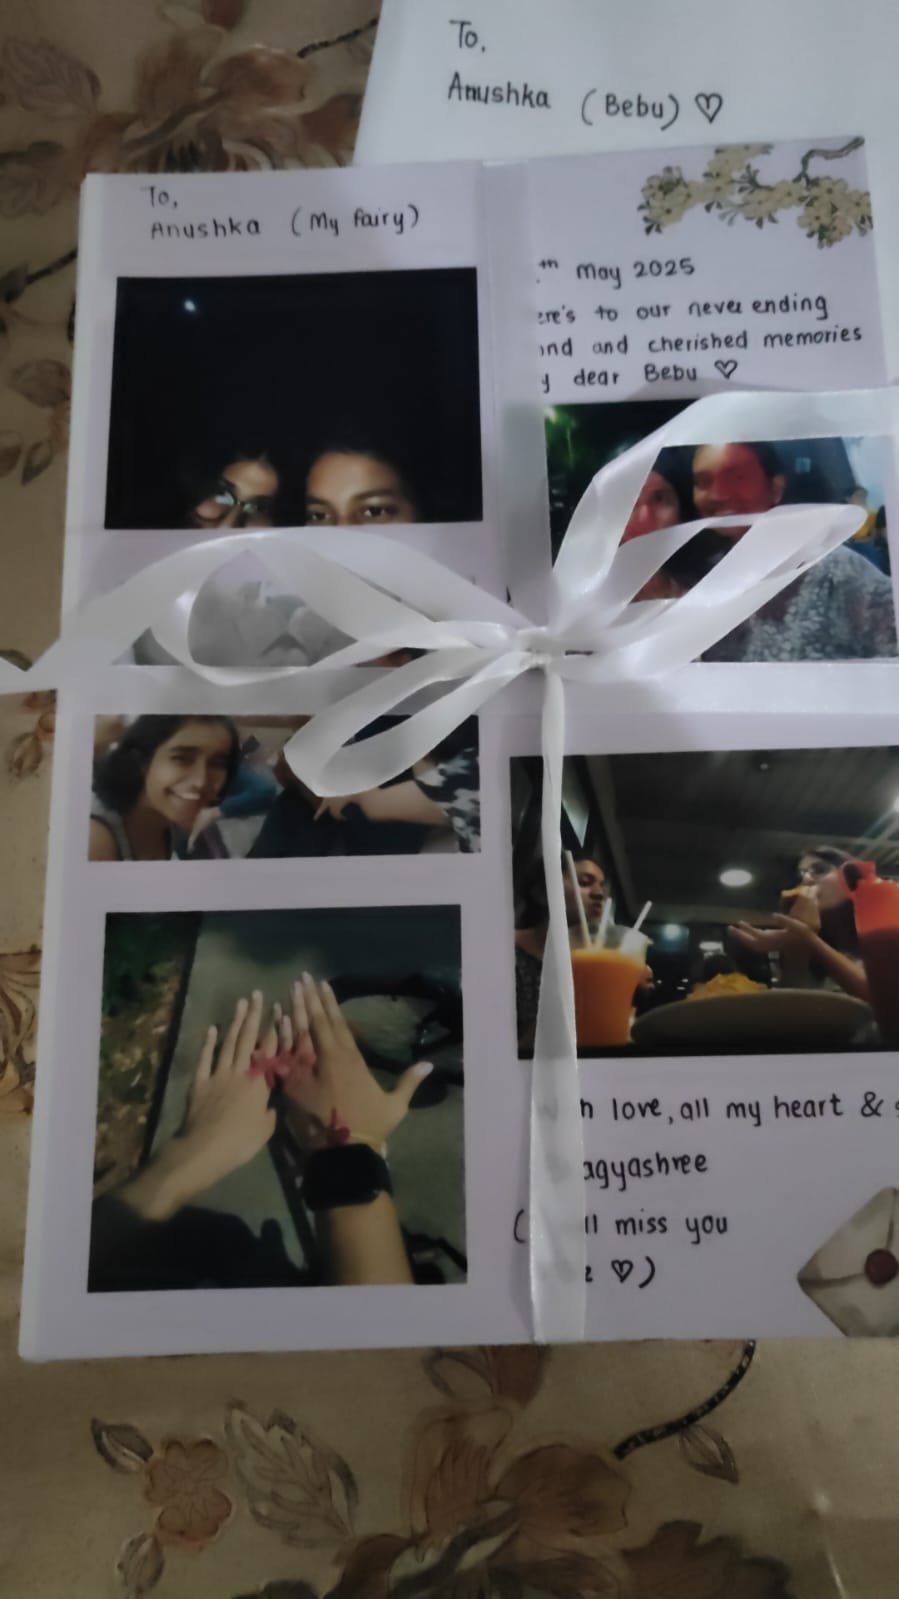 To,
Anushka (Bebu) ♡
To,
Anushka (My fairy)
May 2025
to our never ending
and cherished memories
dear Bebu ♡
love, all my heart &
miss you
♡)